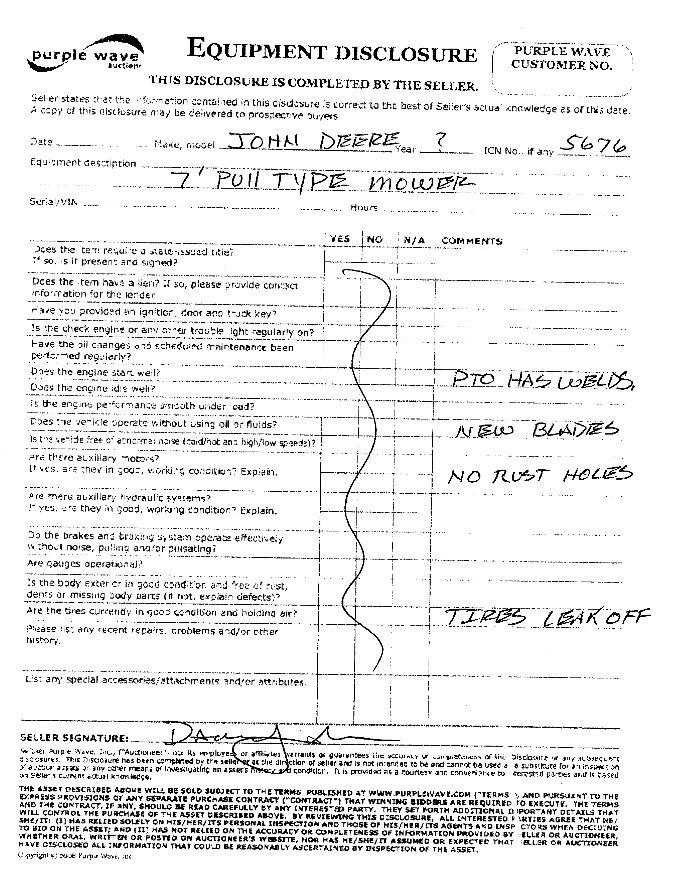 purple wave
auction
EQUIPMENT DISCLOSURE
PURPLE WAVE
CUSTOMER NO.
THIS DISCLOSURE IS COMPLETED BY THE SELLER.
Seller states that the information contained in this disclosure is correct to the best of Seller's actual knowledge as of this date.
A copy of this disclosure may be delivered to prospective buyers
Date Make, model JOHN DEERE Year ? ICN No., if any 5676
Equipment description
7' PUll TYPE MOWER
Serial/VIN Hours
YES NO N/A COMMENTS
Does the item require a state-issued title?
If so, is it present and signed?
Does the item have a lien? If so, please provide contact
information for the lender
Have you provided an ignition, door and truck key?
Is the check engine or any other trouble light regularly on?
Have the oil changes and scheduled maintenance been
performed regularly?
Does the engine start well?
PTO HAS WELDS,
Does the engine idle well?
Is the engine performance smooth under load?
Does the vehicle operate without using oil or fluids?
NEW BLADES
Is the vehicle free of abnormal noise (cold/hot and high/low speeds)?
Are there auxiliary motors?
If yes, are they in good, working condition? Explain.
NO RUST HOLES
Are there auxiliary hydraulic systems?
If yes, are they in good, working condition? Explain.
Do the brakes and braking system operate effectively
without noise, pulling and/or pulsating?
Are gauges operational?
Is the body exterior in good condition and free of rust,
dents or missing body parts (if not, explain defects)?
Are the tires currently in good condition and holding air?
TIRES LEAK OFF
Please list any recent repairs, problems and/or other
history.
List any special accessories/attachments and/or attributes.
SELLER SIGNATURE:
Neither Purple Wave, Inc., ("Auctioneer") nor its employees or affiliates warrants or guarantees the accuracy or completeness of the Disclosure or any subsequent
disclosures. This Disclosure has been completed by the seller or at the direction of seller and is not intended to be and cannot be used a a substitute for an inspection
of auction assets or any other means of investigating an asset's history and condition. It is provided as a courtesy and convenience to terested parties and is based
on Seller's current actual knowledge.
THE ASSET DESCRIBED ABOVE WILL BE SOLD SUBJECT TO THE TERMS PUBLISHED AT WWW.PURPLEWAVE.COM ("TERMS ") AND PURSUANT TO THE
EXPRESS PROVISIONS OF ANY SEPARATE PURCHASE CONTRACT ("CONTRACT") THAT WINNING BIDDERS ARE REQUIRED TO EXECUTE. THE TERMS
AND THE CONTRACT, IF ANY, SHOULD BE READ CAREFULLY BY ANY INTERESTED PARTY. THEY SET FORTH ADDITIONAL I PORTANT DETAILS THAT
WILL CONTROL THE PURCHASE OF THE ASSET DESCRIBED ABOVE. BY REVIEWING THIS DISCLOSURE, ALL INTERESTED P RTIES AGREE THAT HE/
SHE/IT: (I) HAS RELIED SOLELY ON HIS/HER/ITS PERSONAL INSPECTION AND THOSE OF HIS/HER/ITS AGENTS AND INSP CTORS WHEN DECIDING
TO BID ON THE ASSET; AND (II) HAS NOT RELIED ON THE ACCURACY OR COMPLETENESS OF INFORMATION PROVIDED BY ELLER OR AUCTIONEER,
WHETHER ORAL, WRITTEN OR POSTED ON AUCTIONEER'S WEBSITE, NOR HAS HE/SHE/IT ASSUMED OR EXPECTED THAT ELLER OR AUCTIONEER
HAVE DISCLOSED ALL INFORMATION THAT COULD BE REASONABLY ASCERTAINED BY INSPECTION OF THE ASSET.
Copyright © 2008 Purple Wave, Inc.